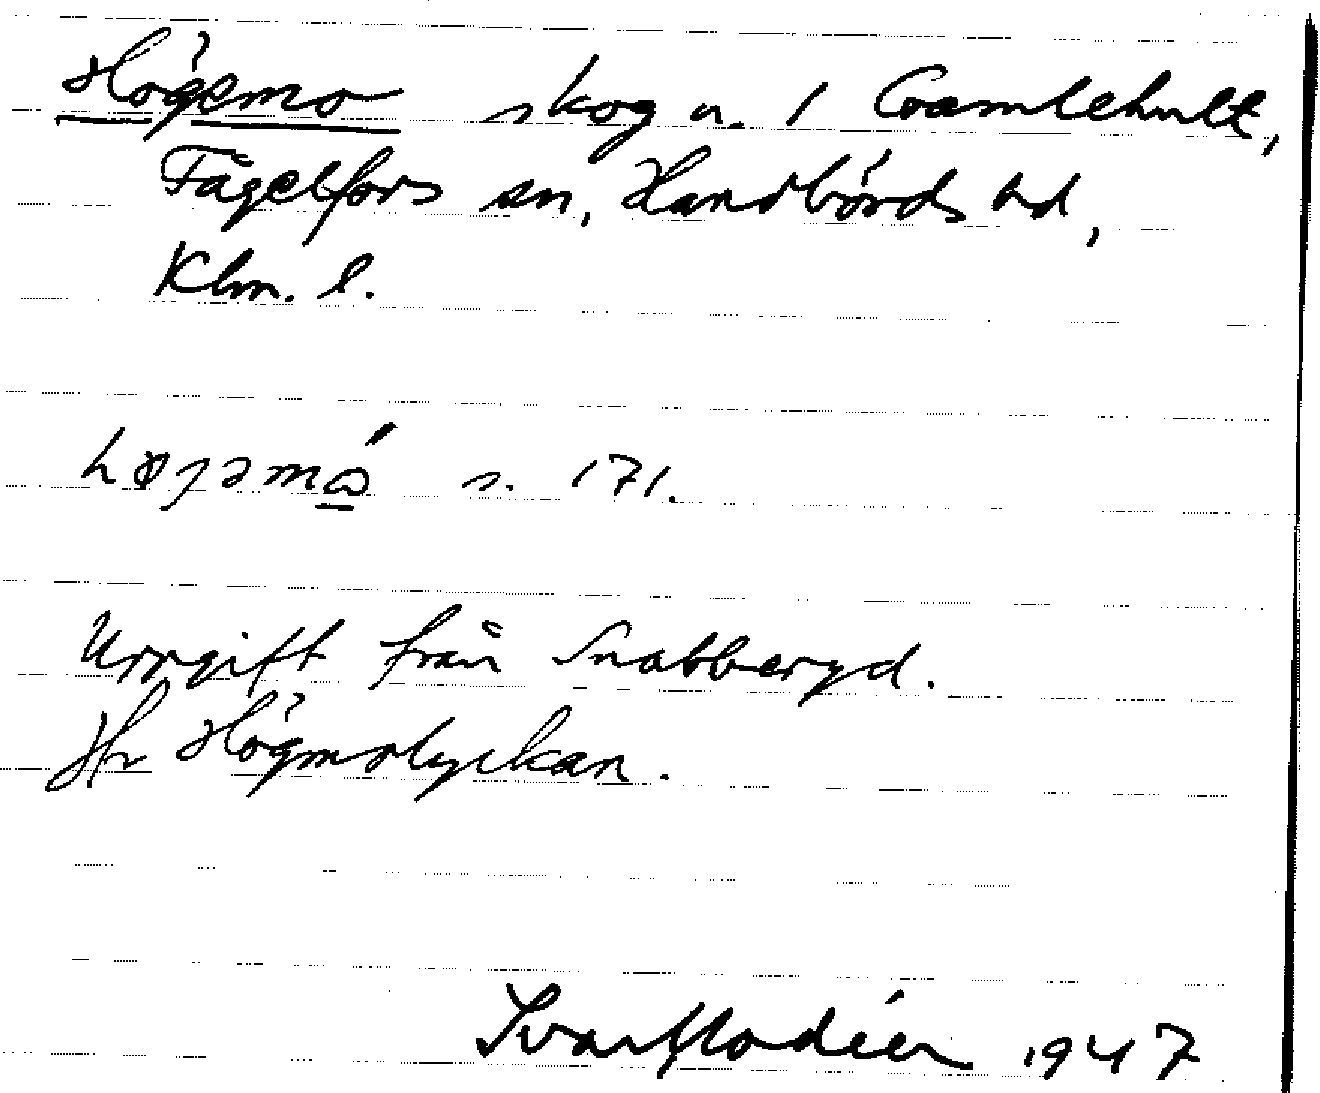 Högemo skog n. 1 Gamlehult,
Fågelfors sn, Handbörds hd,
Klm. l.
s. 171.
Uppgift från Snabberyd.
Jfr Högmolyckan.
Ivar Modéer 1947